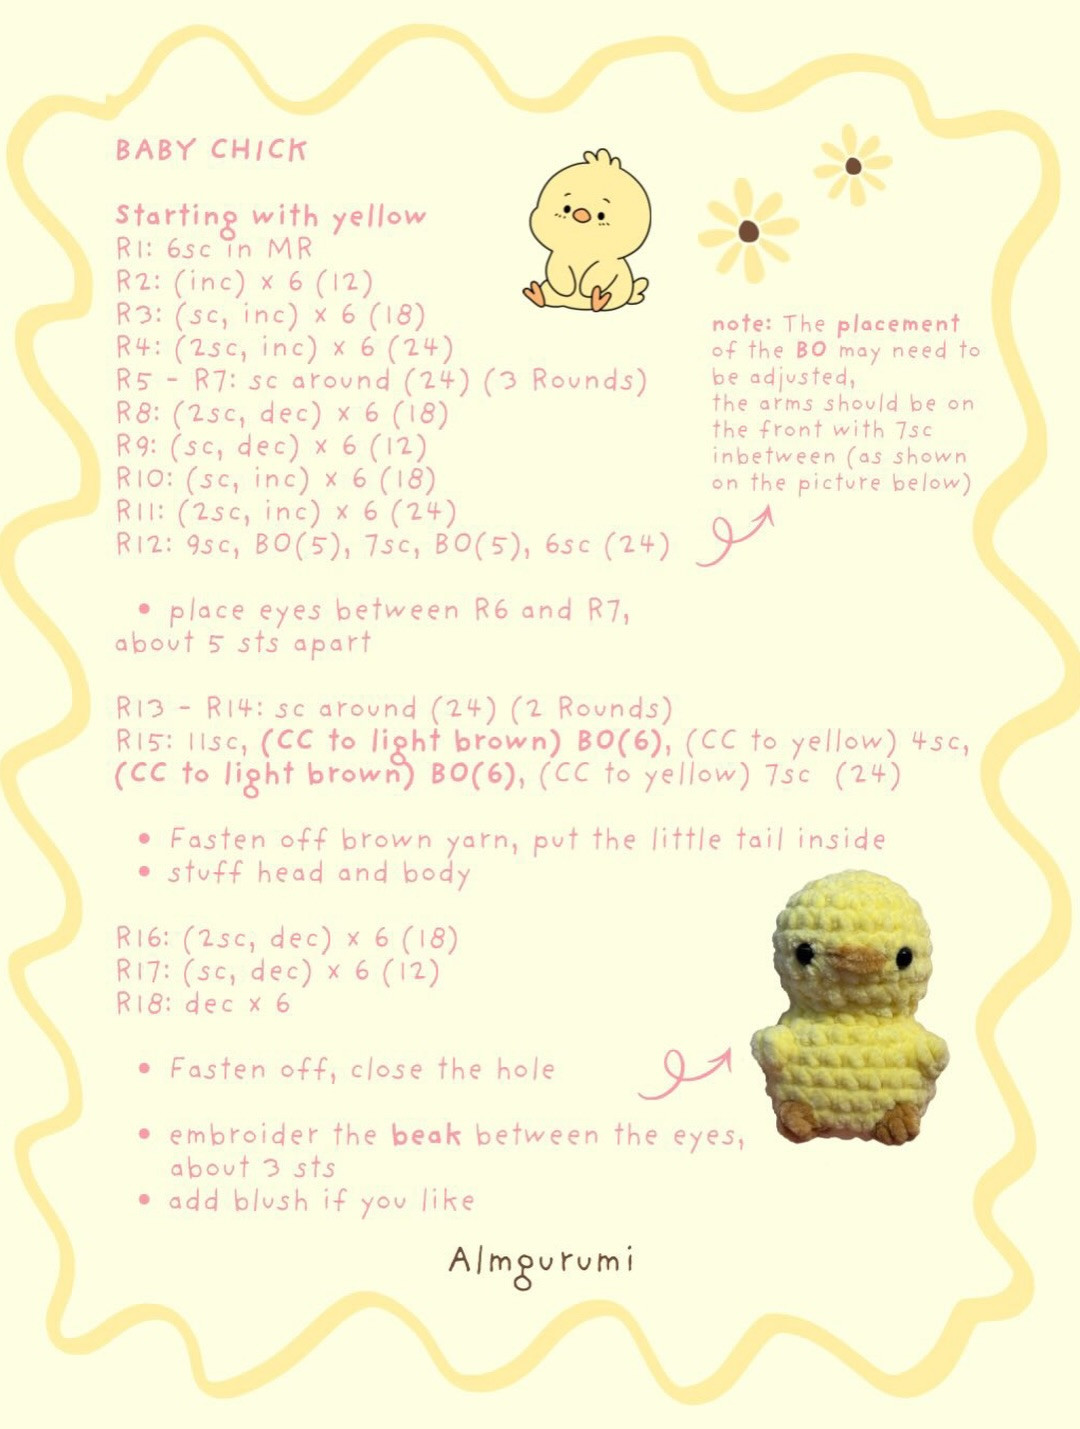 BABY CHICK
Starting with yellow
R1: 6sc in MR
R2: (inc) x 6 (12)
R3: (sc, inc) x 6 (18)
R4: (2sc, inc) x 6 (24)
R5 - R7: sc around (24) (3 Rounds)
R8: (2sc, dec) x 6 (18)
R9: (sc, dec) x 6 (12)
R10: (sc, inc) x 6 (18)
R11: (2sc, inc) x 6 (24)
R12: 9sc, BO(5), 7sc, BO(5), 6sc (24)
note: The placement
of the BO may need to
be adjusted,
the arms should be on
the front with 7sc
inbetween (as shown
on the picture below)
• place eyes between R6 and R7,
about 5 sts apart
R13 - R14: sc around (24) (2 Rounds)
R15: 11sc, (CC to light brown) BO(6), (CC to yellow) 4sc,
(CC to light brown) BO(6), (CC to yellow) 7sc (24)
• Fasten off brown yarn, put the little tail inside
• stuff head and body
R16: (2sc, dec) x 6 (18)
R17: (sc, dec) x 6 (12)
R18: dec x 6
• Fasten off, close the hole
• embroider the beak between the eyes,
about 3 sts
• add blush if you like
Almgurumi